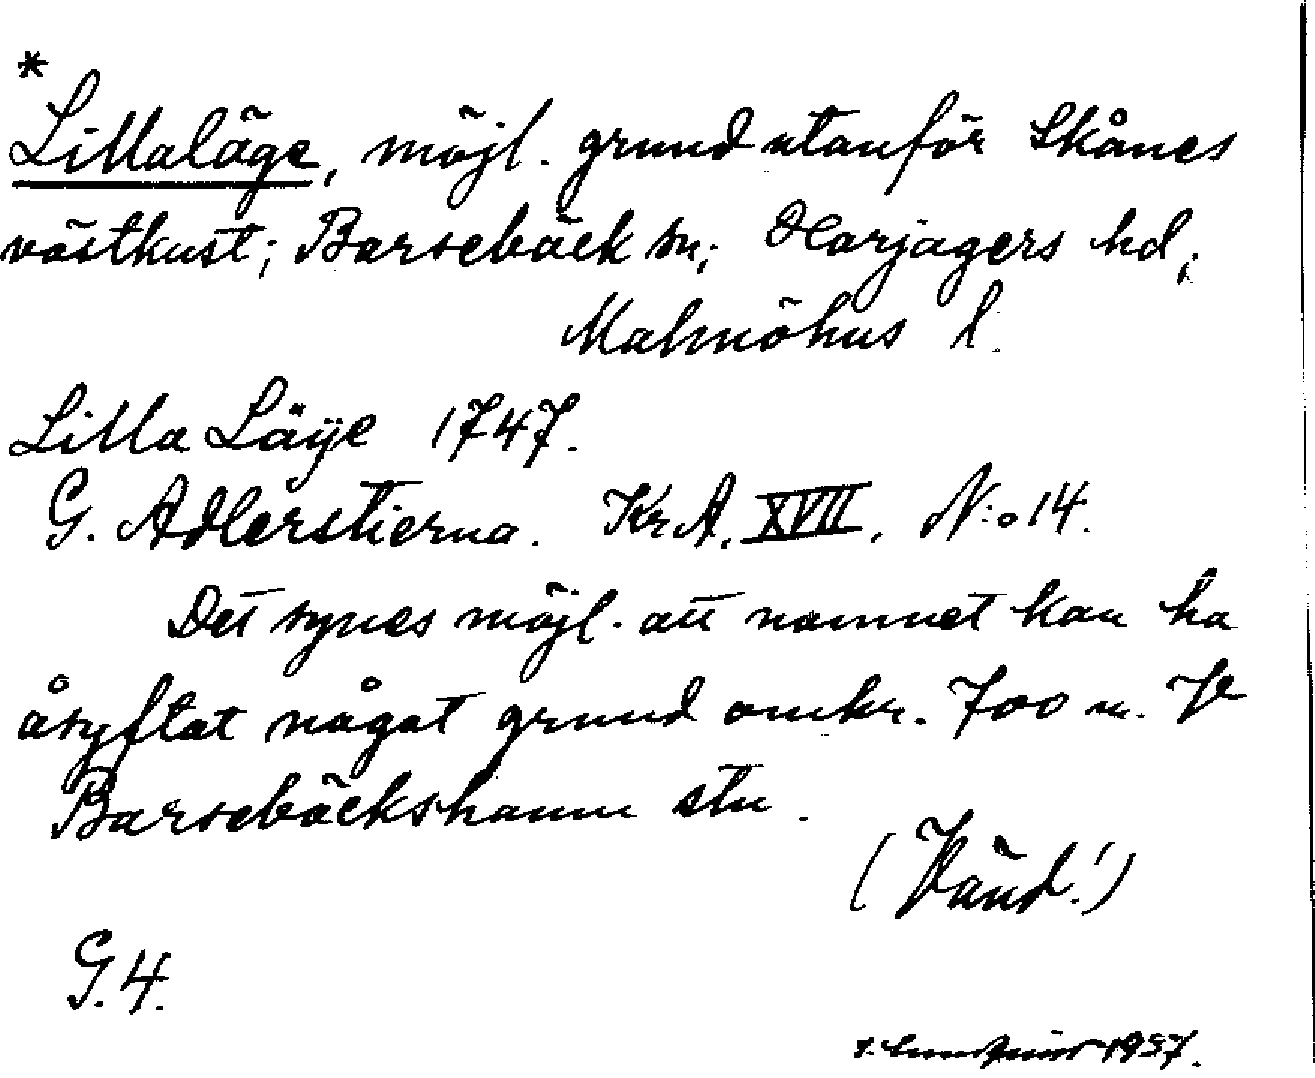 *
Lillaläge, möjl. grund utanför Skånes
västkust; Barsebäck sn; Harjagers hd;
Malmöhus l.
Lilla Läÿe 1747.
G. Adlerstierna. KrA. XVII. N:o 14.
Det synes möjl. att namnet kan ha
åsyftat något grund omkr. 700 m. V
Barsebäckshamn stn.
(Vänd!)
G. 4.
1957.